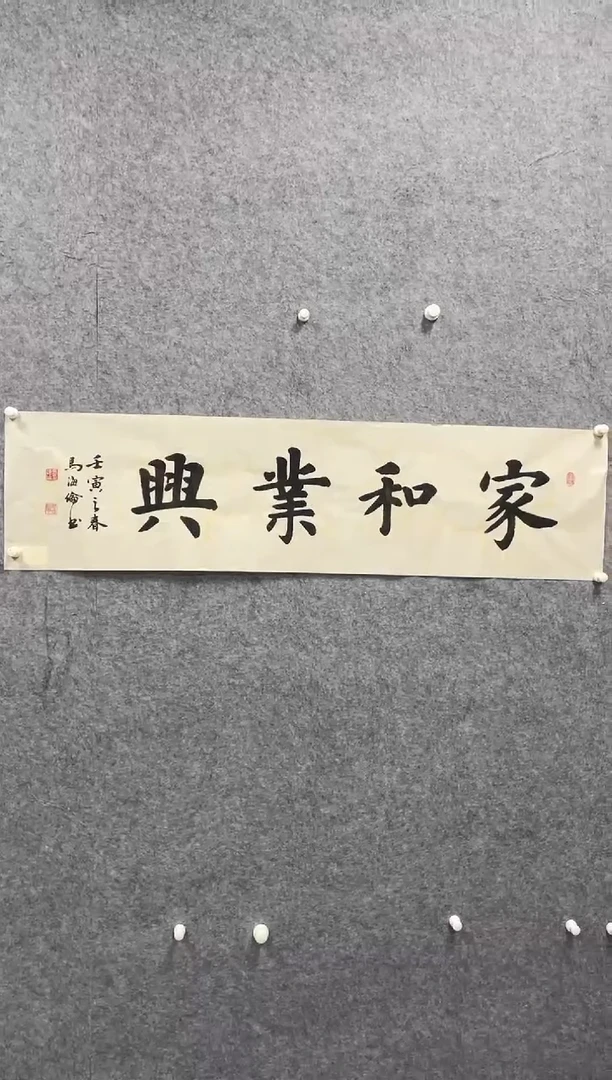 家和業興
壬寅之春
馬海倫書